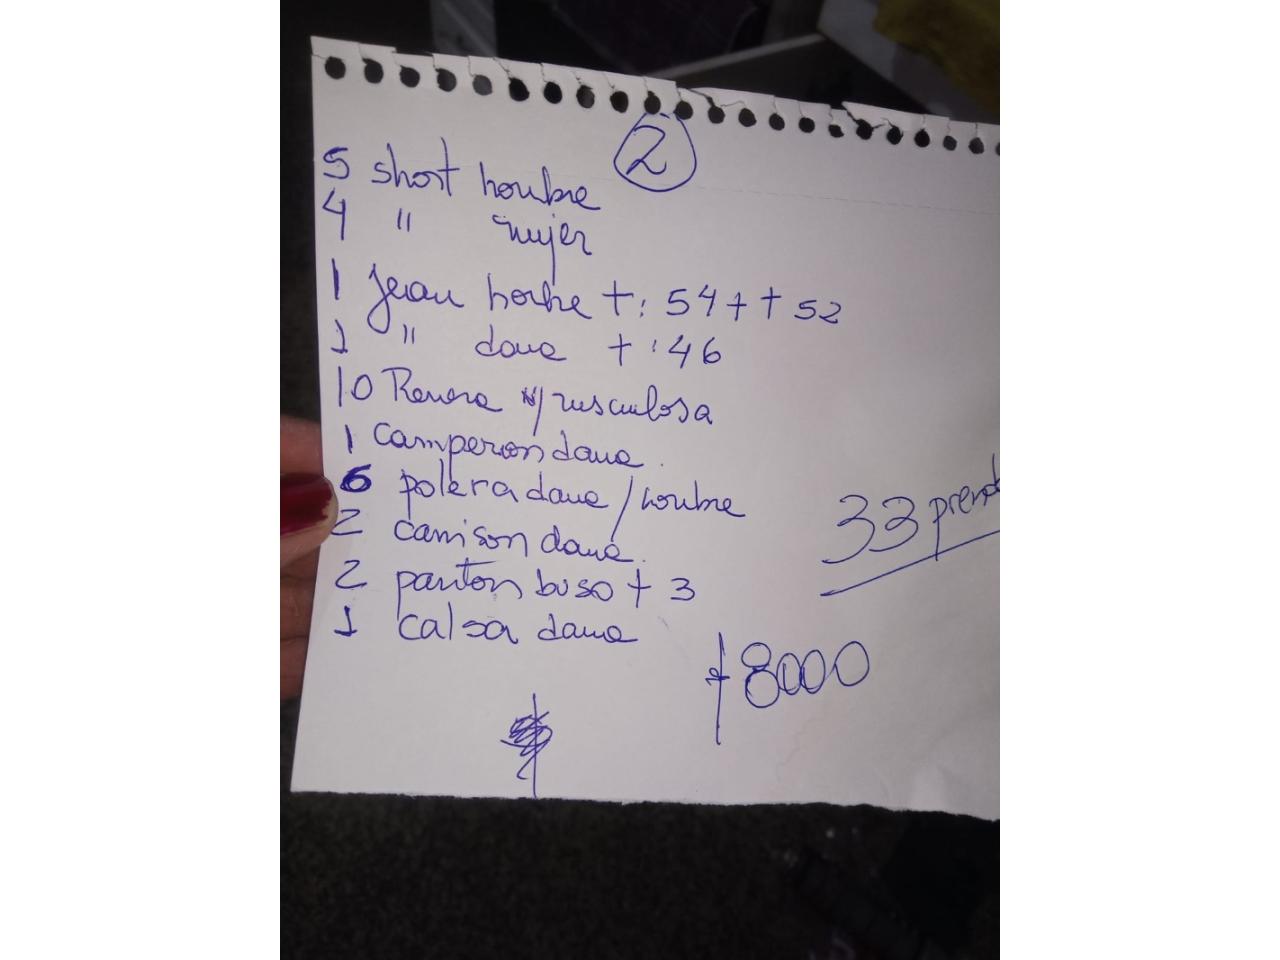 2
5 short hombre
4 " mujer
1 jean hombre t: 54 + t 52
1 " dama t: 46
10 Remera y/musculosa
1 camperon dama.
6 polera dama/hombre
2 camison dama.
2 panton buso t 3
1 calsa dama
33 prend
$8000